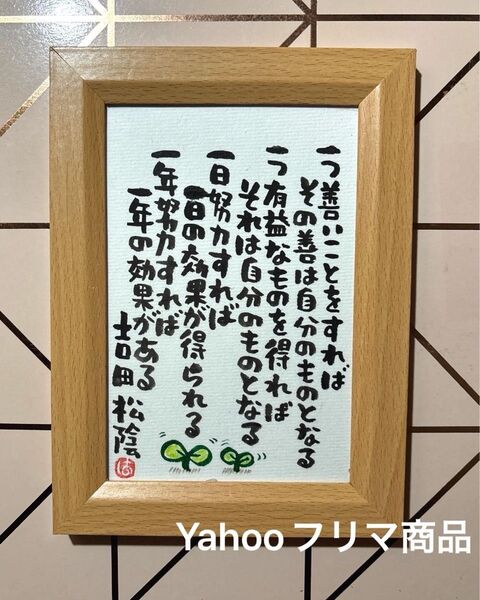 一つ善いことをすれば
その善は自分のものとなる
一つ有益なものを得れば
それは自分のものとなる
一日努力すれば
一日の効果が得られる
一年努力すれば
一年の効果がある
吉田松陰
は
Yahooフリマ商品